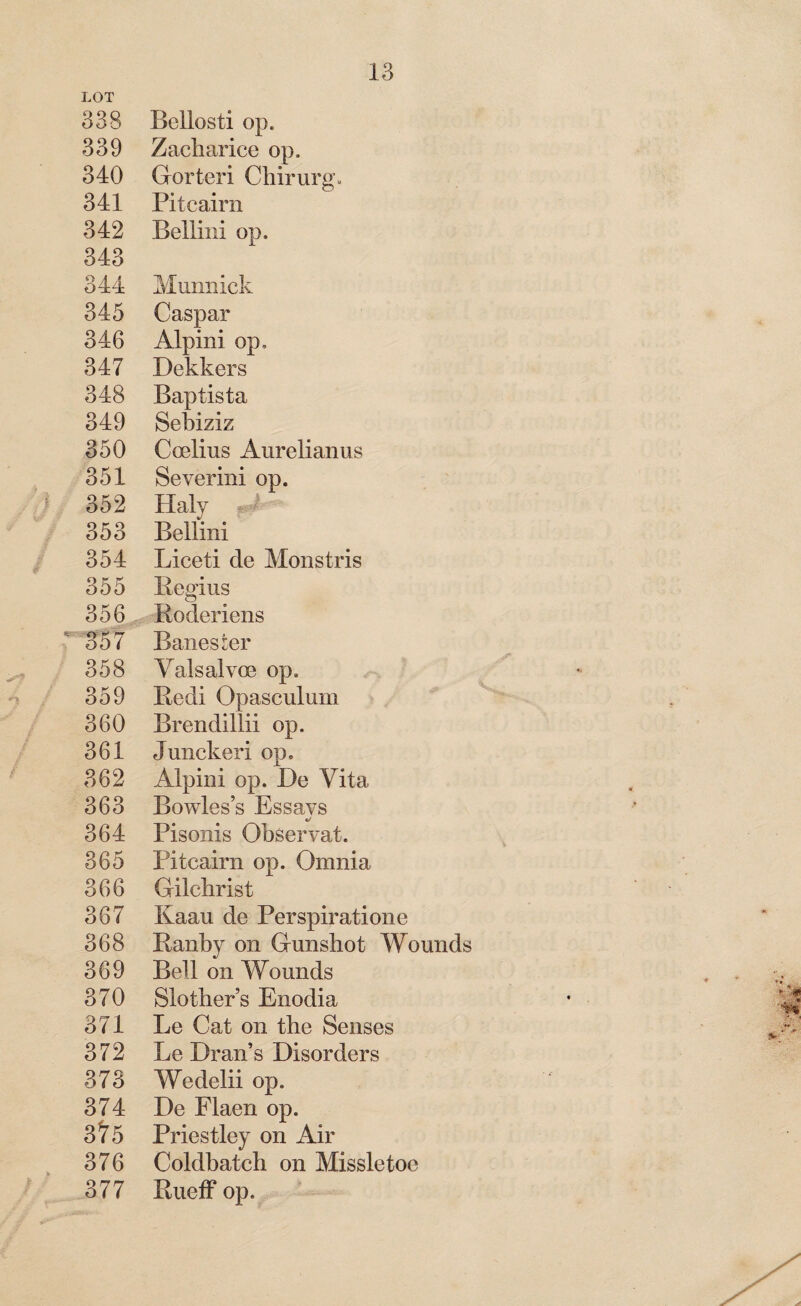 13
LOT
338 Bellosti op.
339 Zacharice op.
340 Gorteri Chirurg.
341 Pitcairn
342 Bellini op.
343
344 Munnick
345 Caspar
346 Alpini op.
347 Dekkers
348 Baptista
349 Sebiziz
350 Cœlius Aurelianus
351 Severini op.
352 Haly
353 Bellini
354 Liceti de Monstris
355 Regius
356 Roderiens
357 Banester
358 Valsalvœ op.
359 Redi Opasculum
360 Brendillii op.
361 Junckeri op.
362 Alpini op. De Vita
363 Bowles's Essays
364 Pisonis Observat.
365 Pitcairn op. Omnia
366 Gilchrist
367 Kaau de Perspiratione
368 Ranby on Gunshot Wounds
369 Bell on Wounds
370 Slother's Enodia
371 Le Cat on the Senses
372 Le Dran's Disorders
373 Wedelii op.
374 De Flaen op.
375 Priestley on Air
376 Coldbatch on Missletoe
377 Rueff op.